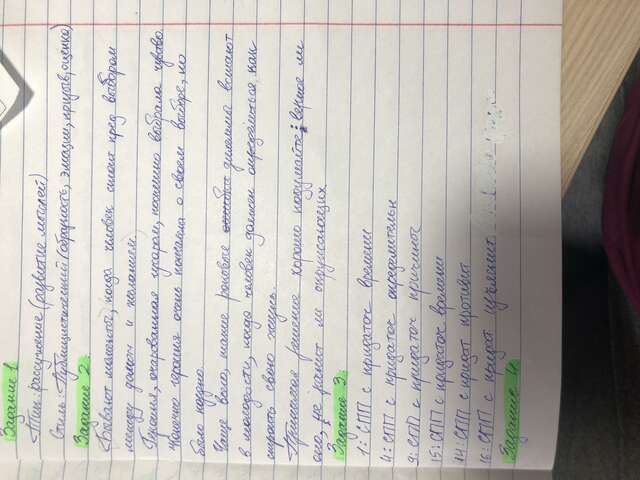 Задание 1
Тип: рассуждение (развитие мыслей)
Стиль: Публицистический (образность, эмоции, призыв, оценка)
Задание 2
Бывают моменты, когда человек стоит пред выбором
между долгом и желанием.
Героиня, очарованная купаном, поспешно выбрала чувство
Конечно героиня очень пожалела о своем выборе, но
было поздно.
Чаще всего, такие роковые дилеммы встают
в молодости, когда человек должен определиться, как
строить свою жизнь.
Принимая решение хорошо подумайте: верное ли
оно, не ранит ли окружающих
Задание 3
1: СПП с придаточ времени
4: СПП с придаточ определительн
9: СПП с придаточ причины
15: СПП с придаточ времени
14: СПП с придат
16: СПП с придат изъяснит
Задание 4.